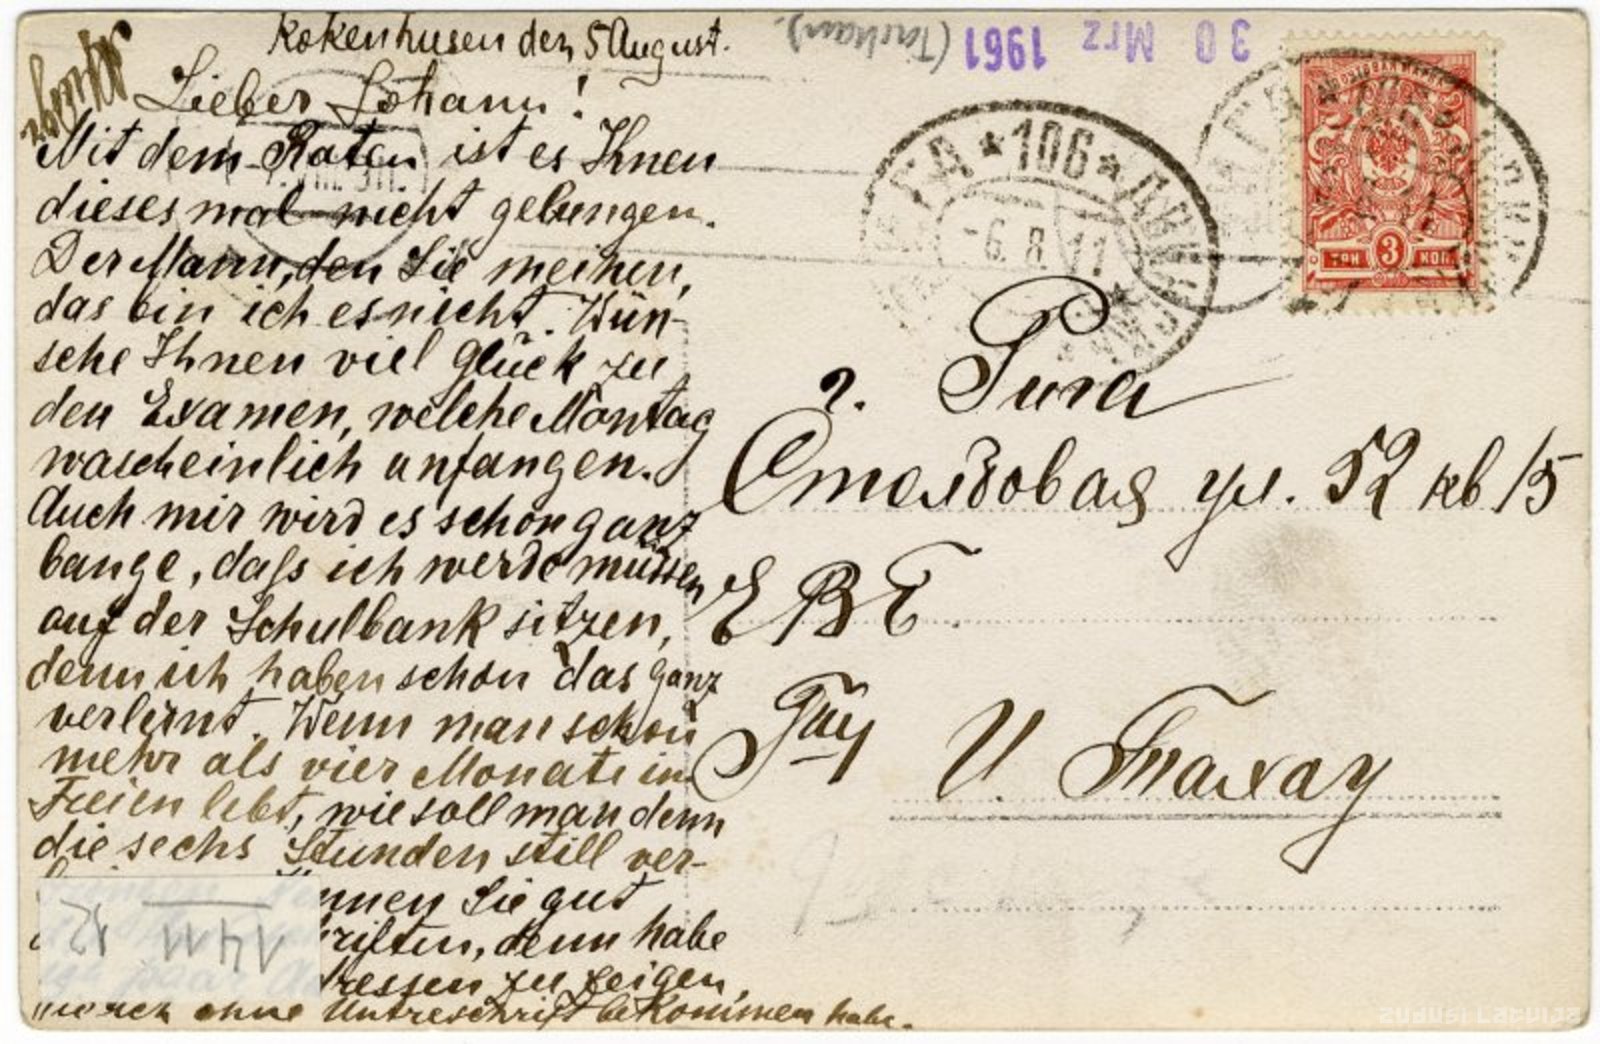 Kokenhusen den 5 August.
Lieber Johann!
Mit dem Raten ist es Ihnen
dieses mal nicht gelungen.
Der Mann, den Sie meinen,
das bin ich es nicht. Wün-
sche Ihnen viel Glück zu
den Examen, welche Montag
wascheinlich anfangen.
Auch mir wird es schon ganz
bange, daß ich werde müssen
auf der Schulbank sitzen,
denn ich haben schon das ganz
verlernt. Wenn man schon
mehr als vier Monate im
Freien lebt, wie soll man denn
die sechs Stunden still ver-
nnen Sie gut
riften, denn habe
ressen zu zeigen,
ohne Untreschrift bekommen habe.
30 Mrz 1961
(Tachau).
РИГА * 106 * ДВИНСК
-6.8.11
ТРИ 3 КОП
г. Рига
Столбовая ул. 52 кв 15
ЕВБ
Гну И. Тахау
1411 12
zudusi Latvija